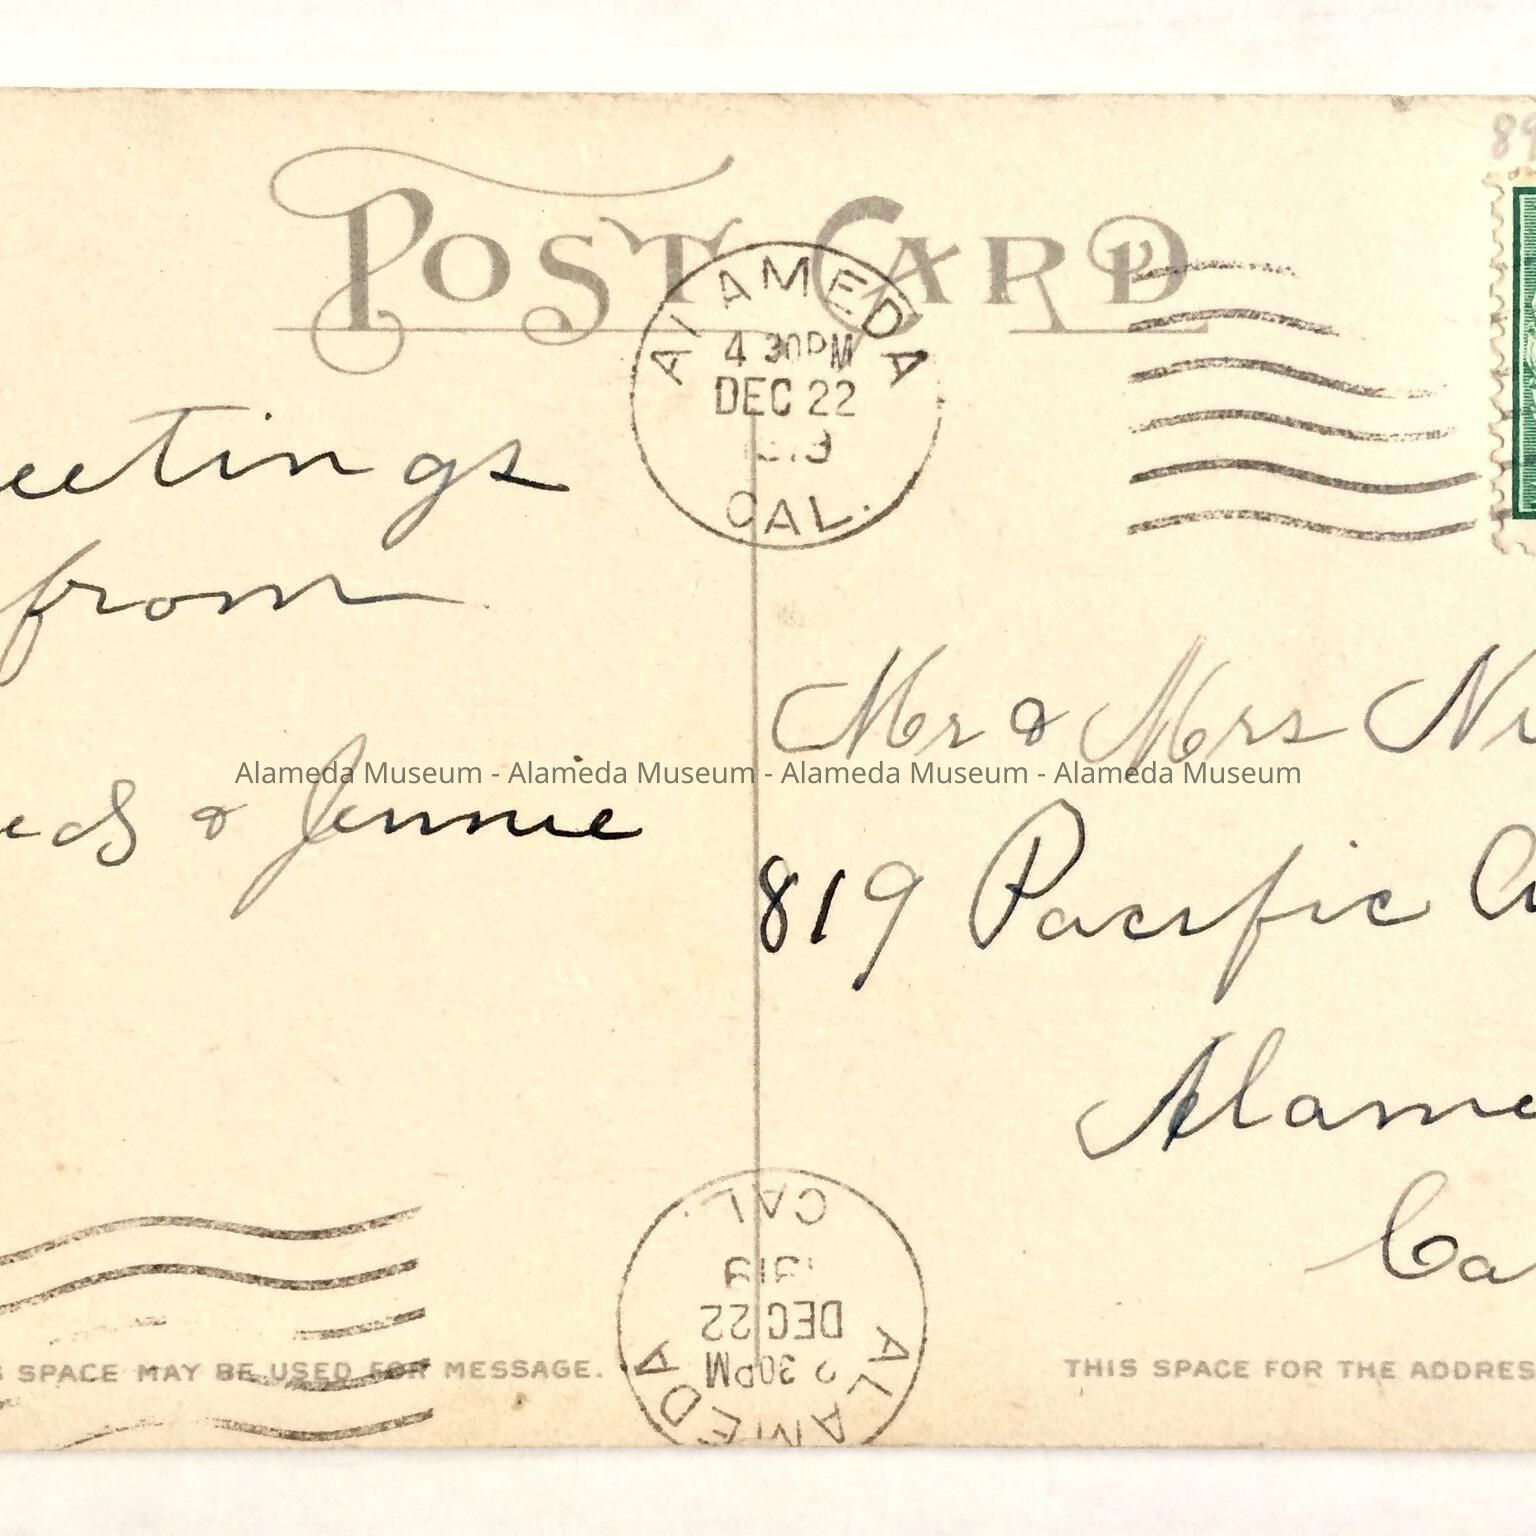 89
POST CARD
ALAMEDA
4 30PM
DEC 22
CAL.
eetings
from
Mr & Mrs Ni
Alameda Museum - Alameda Museum - Alameda Museum - Alameda Museum
eds & Jennie
819 Pacific A
Alame
Ca
CAL.
1919
DEC 22
30PM
ALAMEDA
S SPACE MAY BE USED FOR MESSAGE.
THIS SPACE FOR THE ADDRES